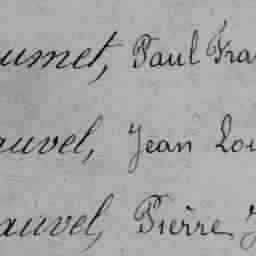 umet, Paul Fra
auvel, Jean Lou
auvel, Pierre J